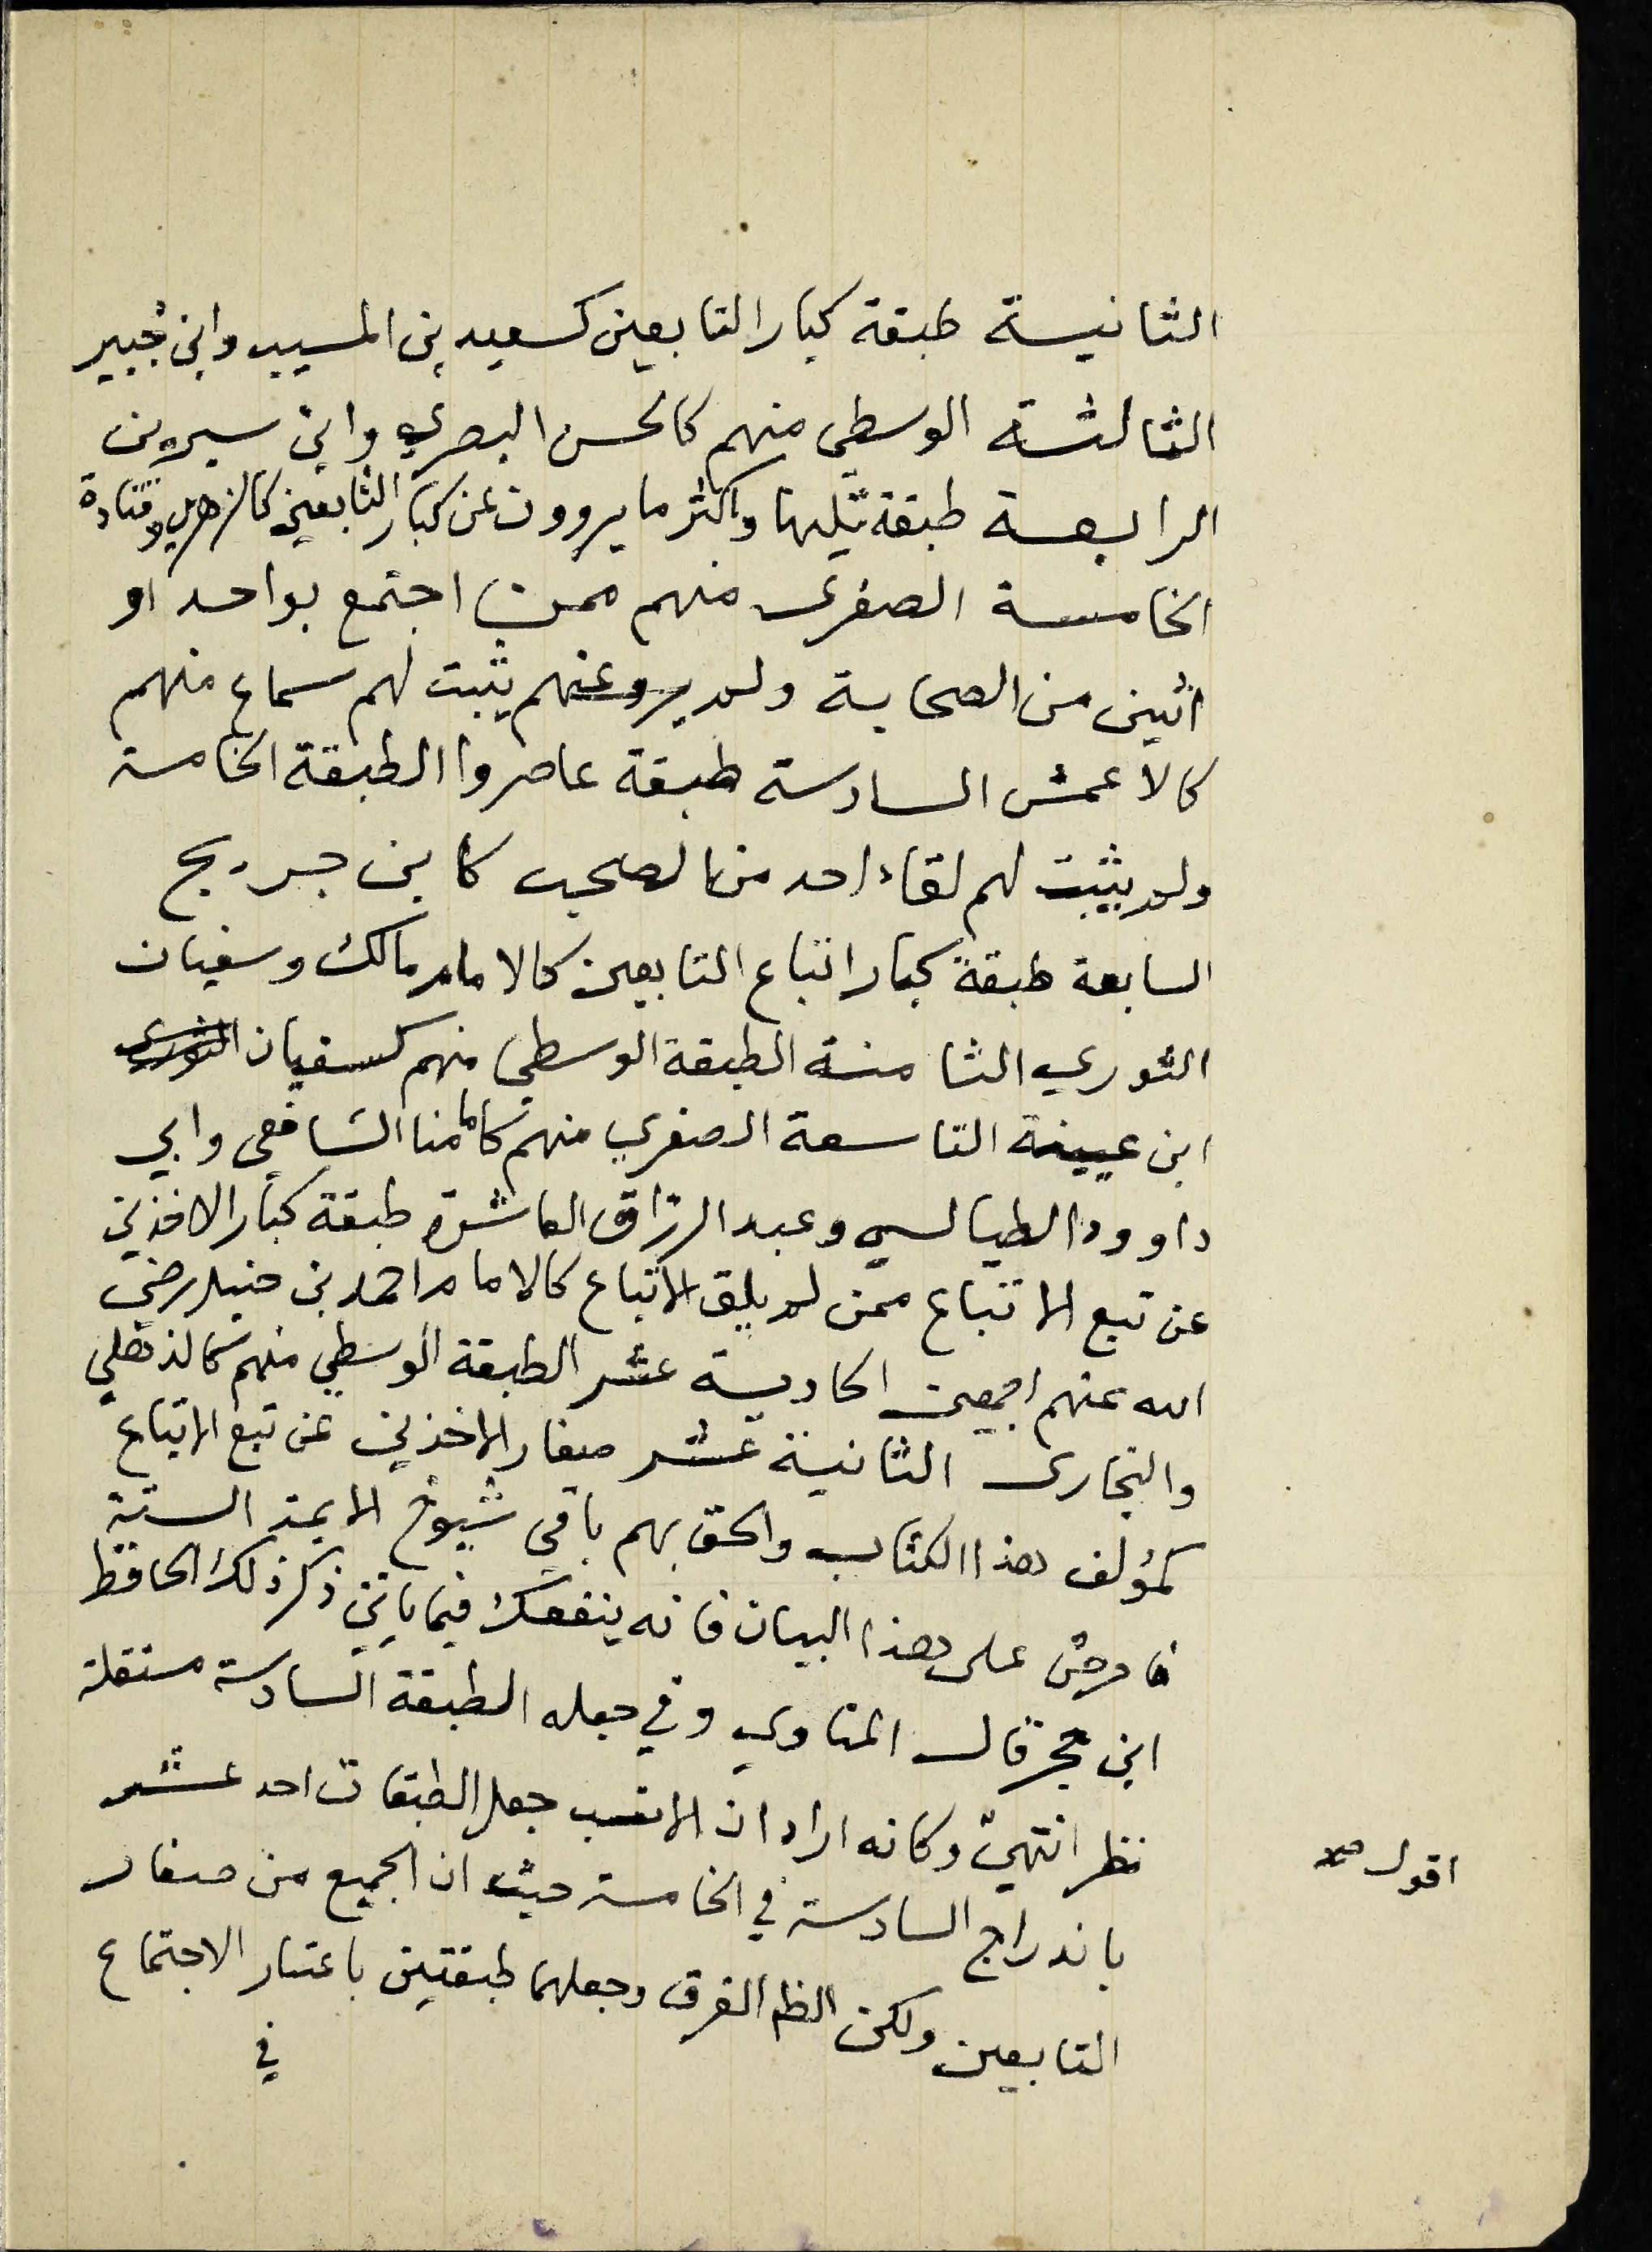 الثانية طبقة كبار التابعين كسعيد بن المسيب وابن جُبير
الثالثة الوسطى منهم كالحسن البصري وابن سيرين
الرابعة طبقة تليها واكثر ما يروون عن كبار التابعين كالزهري وقتادة
الخامسة الصغرى منهم ممن اجتمع بواحد او
اثنين من الصحابة ولم يرو عنهم يثبت لهم سماع منهم
كالاعمش السادسة طبقة عاصروا الطبقة الخامسة
ولم يثبت لهم لقاء احد من الصحب كابن جريج
السابعة طبقة كبار اتباع التابعين كالامام مالك وسفيان
الثوري الثامنة الطبقة الوسطى منهم كسفيان الثوري
ابن عيينة التاسعة الصغرى منهم كامامنا الشافعي وابي
داوود الطيالسي وعبد الرزاق العاشرة طبقة كبار الاخذين
عن تبع الاتباع ممن لم يلق الاتباع كالامام احمد بن حنبل رضي
الله عنهم اجمعين الحادية عشر الطبقة الوسطى منهم كالذهلي
والبخارى الثانية عشر صغار الاخذين عن تبع الاتباع
كمؤلف هذا الكتاب والحق بهم باقي شيوخ الايمة الستة
فاحرص على هذا البيان فانه ينفعك فيما ياتي ذكر ذلك الحافظ
ابن حجر قال المناوي وفي جعله الطبقة السادسة مستقلة
نظر انتهى وكانه اراد ان الانسب جعل الطبقات احد عشر
اقول صح
باندراج السادسة في الخامسة حيث ان الجميع من صغار
التابعين ولكن الظم الفرق وجعلهما طبقتين باعتبار الاجتماع
في